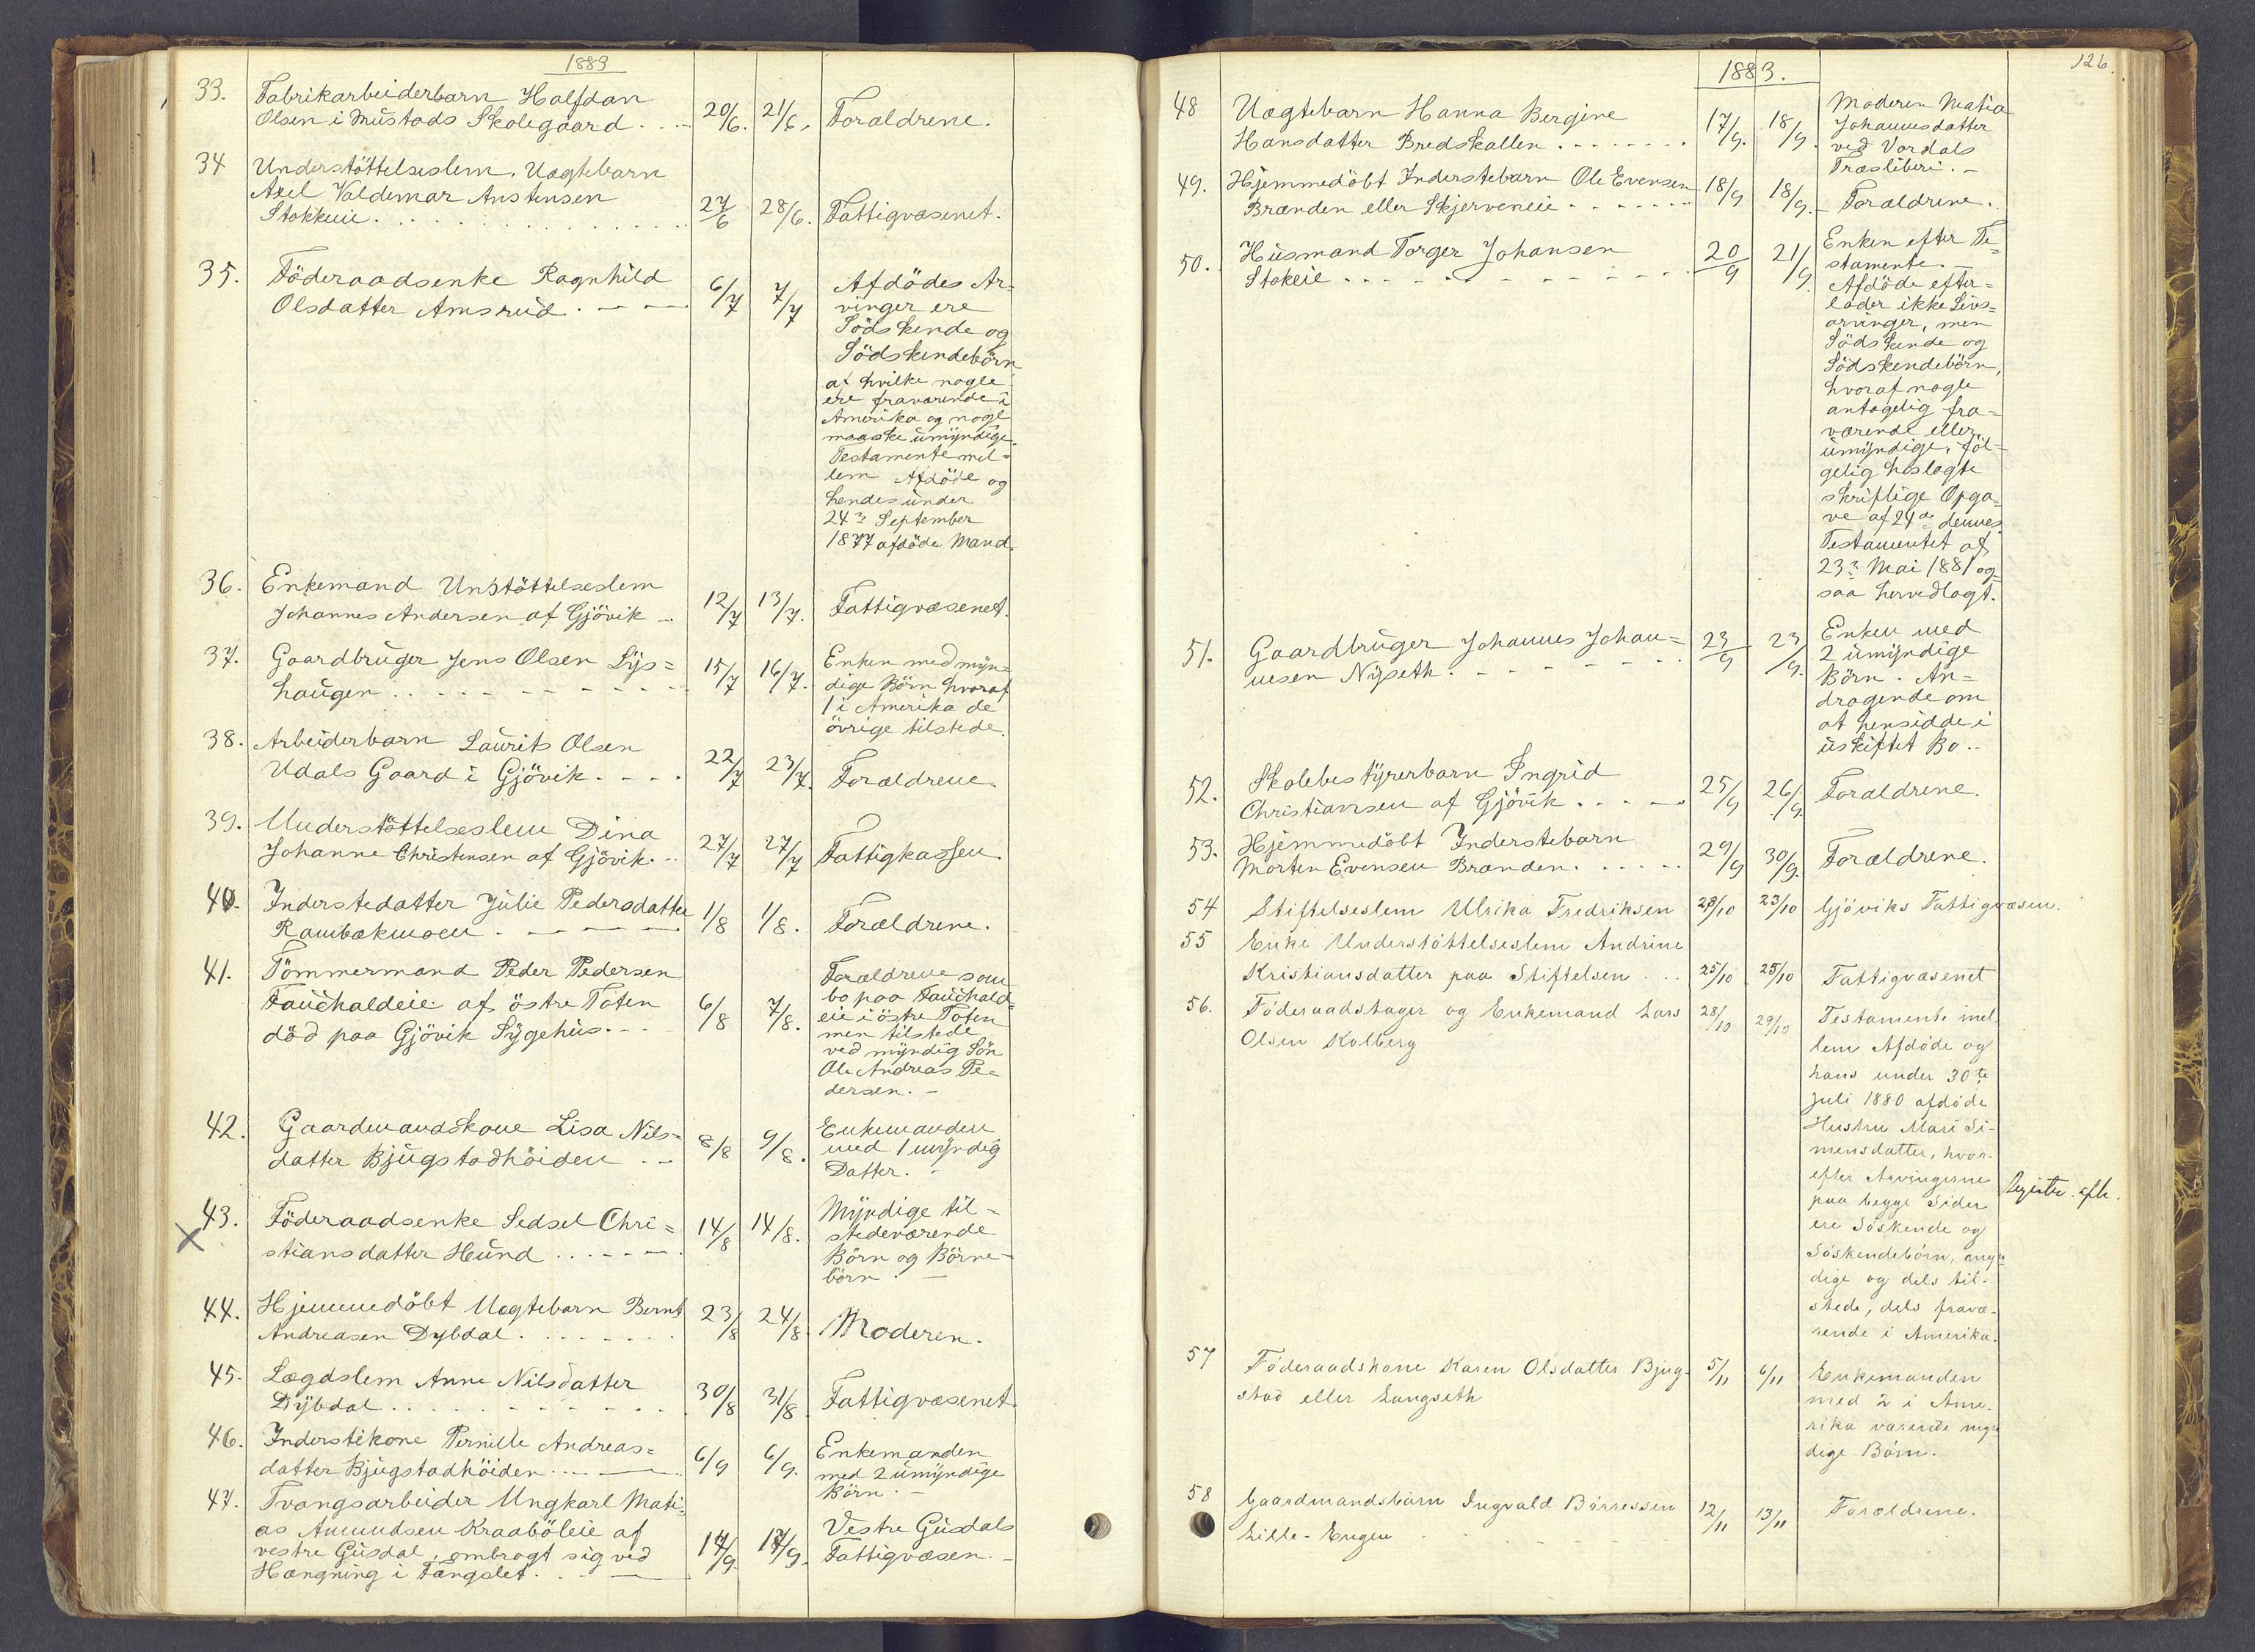 1883
33. Fabrikarbeiderbarn Halfdan
Olsen i Mustads Skolegaard. 20/6. 21/6. Forældrene.
34 Understöttelseslem, Uægtebarn
Axel Valdemar Anstensen
Stokkeie. 27/6 28/6. Fattigvæsenet.
35. Föderaadsenke Ragnhild
Olsdatter Amsrud. 6/7 7/7
Afdödes Ar=
vinger ere
Södskende og
Södskendebörn
af hvilke nogle
ere fraværende i
Amerika og nogle
maaske umyndige.
Testamente mel=
lem Afdöde og
hendes under
24de September
1877 afdöde Mand.
36. Enkemand Unstöttelseslem
Johannes Andersen af Gjövik 12/7 13/7. Fattigvæsenet.
37. Gaardbruger Jens Olsen Lys=
haugen 15/7 16/7.
Enken med myn=
dige Börn hvoraf
1 i Amerika de
övrige tilstede.
38. Arbeiderbarn Laurits Olsen
Udals Gaard i Gjövik. 22/7 23/7. Forældrene.
39. Understöttelseslem Dina
Johanne Christensen af Gjövik. 27/7 27/7 Fattigkassen.
40. Inderstedatter Julie Pedersdatter
Rambækmoen. 1/8 1/8. Forældrene.
41. Tömmermand Peder Pedersen
Fauchaldeie af östre Toten
död paa Gjövik Sygehus. 6/8 7/8.
Forældrene som
bo paa Fauchald=
eie i östre Toten
men tilstede
ved myndig Sön
Ole Andreas Pe=
dersen.
42. Gaardmandskone Lisa Nils=
datter Bjugstadhöiden 8/8 9/8.
Enkemanden
med 1 myndig
Datter.
43. Föderaadsenke Sedsel Chri=
stiansdatter Hund 14/8 14/8.
Myndige til=
stedeværende
Börn og Börne=
börn.
44. Hjemmedöbt Uægtebarn Bernt
Andreasen Dybdal. 23/8 24/8. Moderen.
45. Lægdslem Anne Nilsdatter
Dybdal 30/8 31/8. Fattigvæsenet.
46. Inderstekone Pernille Andreas=
datter Bjugstadhöiden. 6/9 6/9.
Enkemanden
med 2 umyndige
Börn.
47. Tvangsarbeider Ungkarl Mati=
as Amundsen Kraaböleie af
vestre Gusdal, ombragt sig ved
Hængning i Fængslet. 17/9. 17/9.
Vestre Gusdals
Fattigvæsen.
1883.
126.
48 Uægtebarn Hanna Bergine
Hansdatter Bredskallen 17/9. 18/9.
Moderen Matia
Johannesdatter
ved Vardals
Træsliberi.
49. Hjemmedöbt Inderstebarn Ole Evensen
Brænden eller Skjerveneie 18/9 18/9. Forældrene.
50. Husmand Torger Johansen
Stokeie 20/9 21/9.
Enken efter Te=
stamente.
Afdöde efter=
lader ikke Livs=
arvinger, men
Södskende og
Södskendebörn,
hvoraf nogle
antagelig fra=
værende eller
umyndige, föl=
gelig hoslagte
skriftlige Opga=
ve af 24de dennes
Testamentet af
23de Mai 1881 og=
saa hervedlagt.
51. Gaardbruger Johannes Johan=
nesen Nyseth. 23/9 23/9.
Enken med
2 umyndige
Börn. An=
dragende om
at hensidde i
uskiftet Bo.
52. Skolebestyrerbarn Ingrid
Christiansen af Gjövik 25/9 26/9. Forældrene.
53. Hjemmedöbt Inderstebarn
Morten Evensen Brænden. 29/9 30/9. Forældrene.
54 Stiftelseslem Ulrika Fredriksen 23/10 23/10 Gjöviks Fattigvæsen.
55 Enke Understöttelseslem Andrine
Kristiansdatter paa Stiftelsen 25/10 25/10 Fattigvæsenet
56. Föderaadstager og Enkemand Lars
Olsen Kolberg 28/10 29/10
Testamente mel-
lem Afdöde og
hans under 30te
Juli 1880 afdöde
Hustru Mari Si-
mensdatter, hvor-
efter Arvingerne
paa begge Sider
ere Söskende og
Söskendebörn, myn
dige og dels til-
stede, dels fravæ-
rende i Amerika.
57 Föderaadskone Karen Olsdatter Bjug-
stad eller Langseth 5/11 6/11
Enkemanden
med 2 i Ame-
rika værende myn
dige Börn.
58 Gaardmandsbarn Ingvald Börressen
Lille-Engen 12/11 13/11 Forældrene.